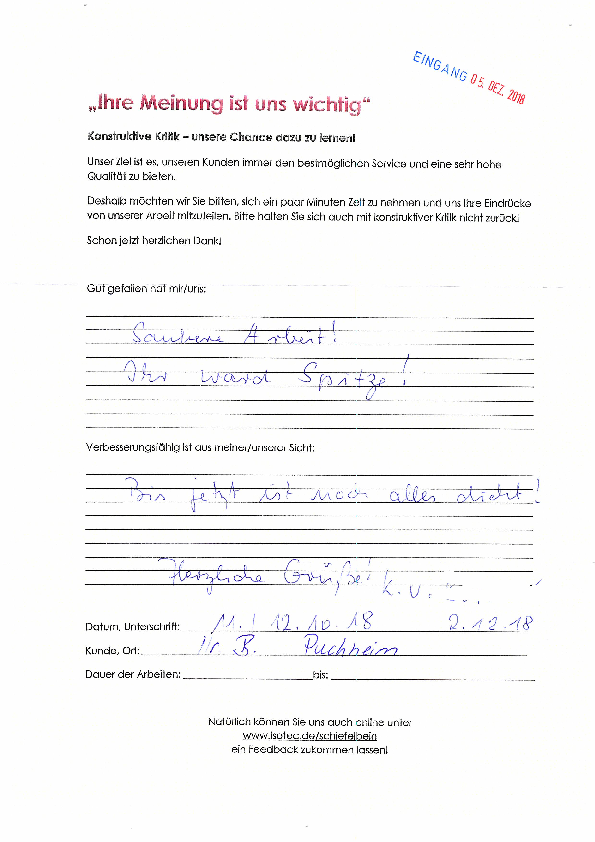 EINGANG 05. DEZ. 2018
„Ihre Meinung ist uns wichtig“
Konstruktive Kritik – unsere Chance dazu zu lernen!
Unser Ziel ist es, unseren Kunden immer den bestmöglichen Service und eine sehr hohe
Qualität zu bieten.
Deshalb möchten wir Sie bitten, sich ein paar Minuten Zeit zu nehmen und uns Ihre Eindrücke
von unserer Arbeit mitzuteilen. Bitte halten Sie sich auch mit konstruktiver Kritik nicht zurück!
Schon jetzt herzlichen Dank!
Gut gefallen hat mir/uns:
Saubere Arbeit!
Ihr ward Spitze!
Verbesserungsfähig ist aus meiner/unserer Sicht:
Bis jetzt ist noch alles dicht!
Herzliche Grüße!
Datum, Unterschrift: 11. / 12.10.18 2.12.18
Kunde, Ort: B. Puchheim
Dauer der Arbeiten: bis:
Natürlich können Sie uns auch online unter
www.isotec.de/schiefelbein
ein Feedback zukommen lassen!